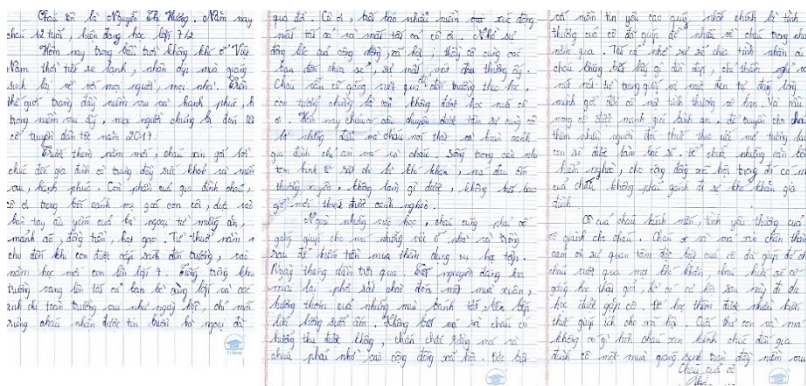 Cháu tên là Nguyễn Thị Hương. Năm nay
cháu 12 tuổi, hiện đang học lớp 7/2
Hôm nay trong bầu trời không khí ở Việt
Nam thời tiết se lạnh, nhân dịp mùa giáng
sinh lại về với mọi người, mọi nhà. Trên
thế giới tràng đầy niềm vui và hạnh phúc, h
trong niềm vui ấy, mọi người chúng ta đón tết
cổ truyền dân tộc năm
Trước thềm năm mới, cháu xin gởi lời
chúc đến gia đình cô tràng đầy sức khoẻ và niềm
vui, hạnh phúc. Còn phần của gia đình cháu,
cô ơi trong bối cảnh mẹ góa con côi, dựa vào
bàn tay âu yếm của bà ngoại từ miếng ăn,
mảnh áo, đồng tiền, hạt gạo. Từ thuở năm
cho đến khi con được cắp sách đến trường, vài
năm học mới con lên lớp 7. Tiếng trống khai
trường vang lên tất cả bạn bè cùng lớp và các
anh chị toàn trường vui như ngày hội, chỉ một
riêng cháu nhận được tin buồn bà ngoại đã
quá đổi. Cô ơi, trời bao nhiêu xúc động
mất tất cả và mất tất cả cô ơi. Nhờ sự
động lực của cộng đồng, xã hội, thầy cô cùng các
bạn đến chia sẻ, sự mất mát đau thương ấy.
Cháu vẫn cố gắng vượt qua để trường theo học,
con tưởng chừng là con không được học nữa cô
ơi. Hôm nay cháu có câu chuyện được tâm sự cùng cô
là những điều mà cháu nói thật có hoàn cảnh
gia đình chỉ còn mẹ và cháu. Sống trong căn nhà
tạm bình bị dột chi là khó khăn, mẹ đau ốm
thường xuyên, không làm gì được, không biết bao
giờ mới thoát được cảnh nghèo.
Ngoài những việc học, cháu cũng phải cố
gắng giúp cho mẹ những việc ở nhà và trồng
rau để kiếm tiền mua thêm dụng cụ học tập.
Ngày tháng dần trôi qua đất nguyên đang học
mai lại phơi sắc chào đón một mùa xuân,
hương thơm của những mùi bánh tết bên bếp
lửa hồng sưởi ấm. Không biết mẹ và cháu có
hưởng thụ được không, chắc chắc rằng mẹ và
cháu phải nhờ vào cộng đồng xã hội. Đặc biệt
có niềm tin yêu cao quý nhất chính là tình
thương của cô đã giúp đỡ nhiều về cháu trong nhiều
năm qua. Tất cả nhờ sự sẻ chia tình nhân ái
cháu không biết lấy gì đền đáp, chỉ thầm nghĩ và
mình gởi đến cô
thành nhân người để thoát theo ước mơ tương lai
con sẽ được làm bác sĩ. Để chữa những căn bệnh
hiểm nghèo, cho cộng đồng xã hội trong đó có mẹ
của cháu. Không phải gánh đi sự khó khăn gia
đình.
Cô của cháu kính mến, tình yêu thương của
cô giành cho cháu. Cháu và và mẹ xin chân thành
cảm ơn sự quan tâm đặc biệt của cô đã giúp đỡ cho
cháu vượt qua mọi khó khăn, cháu hứa sẽ cố
gắng học thật giỏi để có cơ hội sau này đi du
học được gặp cô. Để học thêm được nhiều kiến
thức giúp ích cho xã hội. Cuối thư con và mẹ
không có gì hơn cháu xin kính chúc đến gia
đình cô một mùa giáng sinh tràn đầy niềm vui
Cháu của cô